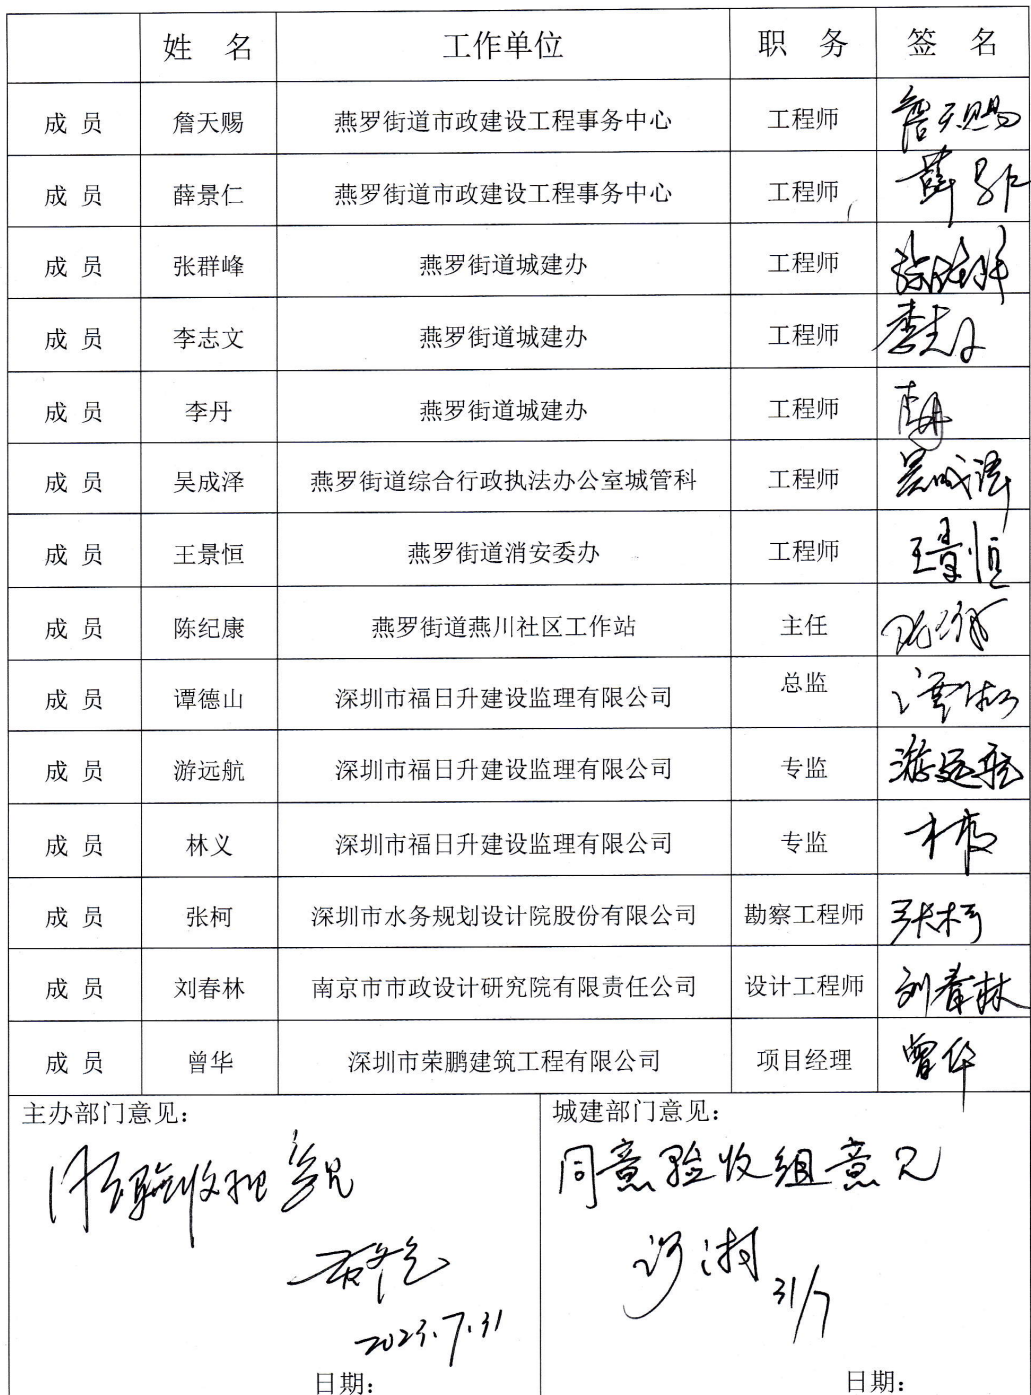 姓 名 工作单位 职 务 签 名
成 员 詹天赐 燕罗街道市政建设工程事务中心 工程师 詹天赐
成 员 薛景仁 燕罗街道市政建设工程事务中心 工程师 薛
成 员 张群峰 燕罗街道城建办 工程师
成 员 李志文 燕罗街道城建办 工程师 李志文
成 员 李丹 燕罗街道城建办 工程师 李丹
成 员 吴成泽 燕罗街道综合行政执法办公室城管科 工程师 吴成泽
成 员 王景恒 燕罗街道消安委办 工程师 王景恒
成 员 陈纪康 燕罗街道燕川社区工作站 主任
成 员 谭德山 深圳市福日升建设监理有限公司 总监
成 员 游远航 深圳市福日升建设监理有限公司 专监 游远航
成 员 林义 深圳市福日升建设监理有限公司 专监
成 员 张柯 深圳市水务规划设计院股份有限公司 勘察工程师 张柯
成 员 刘春林 南京市市政设计研究院有限责任公司 设计工程师 刘春林
成 员 曾华 深圳市荣鹏建筑工程有限公司 项目经理 曾华
主办部门意见：
验收组意见
2023.7.31
日期：
城建部门意见：
同意验收组意见
31/7
日期：